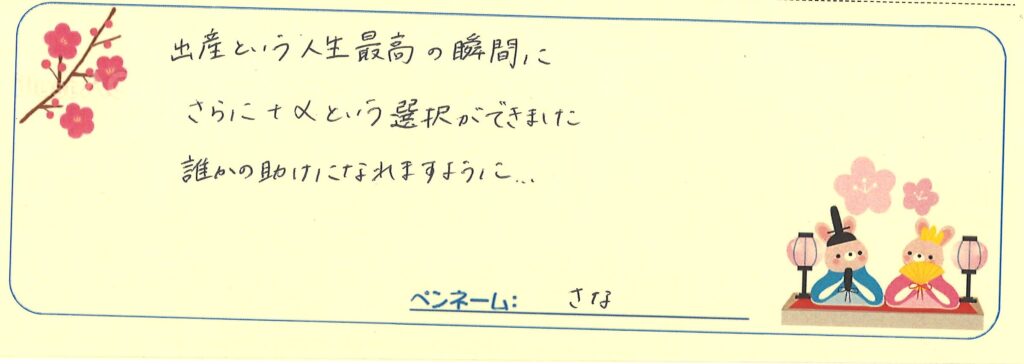 出産という人生最高の瞬間に
さらに+αという選択ができました
誰かの助けになれますように...
ペンネーム: さな